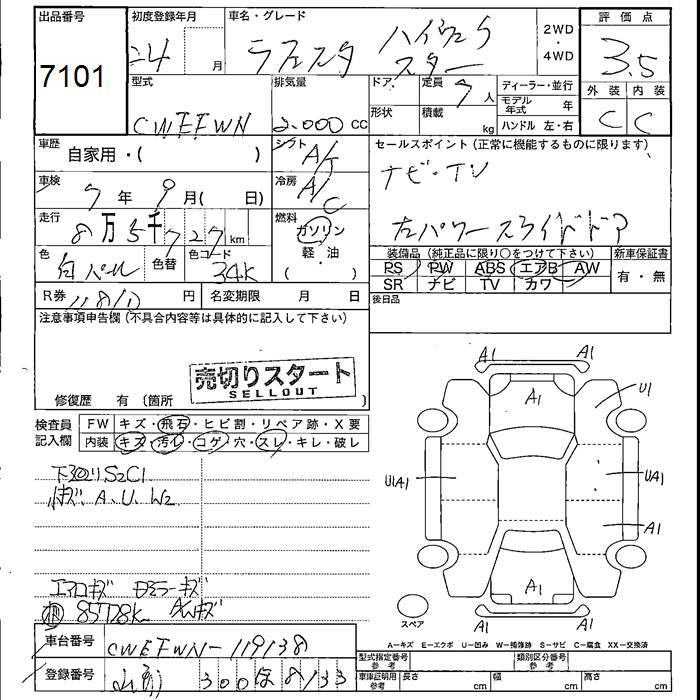 出品番号
7101
初度登録年月
24 月
車名・グレード
ラフェスタ ハイウェイスター
2WD
・
4WD
評価点
3.5
外装 内装
C C
型式
CWEFWN
排気量
2.000 cc
ドア
形状
定員
7 人
積載
kg
ディーラー・並行
モデル年式 年
ハンドル 左・右
車歴
自家用・( )
シフト
A/T
セールスポイント(正常に機能するものに限ります)
ナビ・TV
左パワースライドドア
車検
7 年 9 月( 日)
冷房
A/C
走行
8万5千727 km
燃料
ガソリン
・
軽・油
( )
色
白パール
色替
色コード
34K
装備品(純正品に限り○をつけて下さい)
PS PW ABS エアB AW
SR ナビ TV カワ
新車保証書
有・無
R券
円
名変期限 月 日
後日品
注意事項申告欄(不具合内容等は具体的に記入して下さい)
売切りスタート
SELLOUT
修復歴 有(箇所 )
検査員記入欄
FW キズ・飛石・ヒビ割・リペア跡・X要
内装 キズ・汚レ・コゲ・穴・スレ・キレ・破レ
下回りS2C1
A、U、W2
エアロキズ ミラーキズ
85728K AWキズ
車台番号
CWEFWN-119138
登録番号
300 ほ 8133
A1 A1
A1
U1
UA1
A1
U1A1
A1
A1 A1
スペア
A-キズ E-エクボ U-凹み W-補修跡 S-サビ C-腐食 XX-交換済
型式指定番号
参考
類別区分番号
参考
車庫証明用
参考
長さ cm 幅 cm 高さ cm